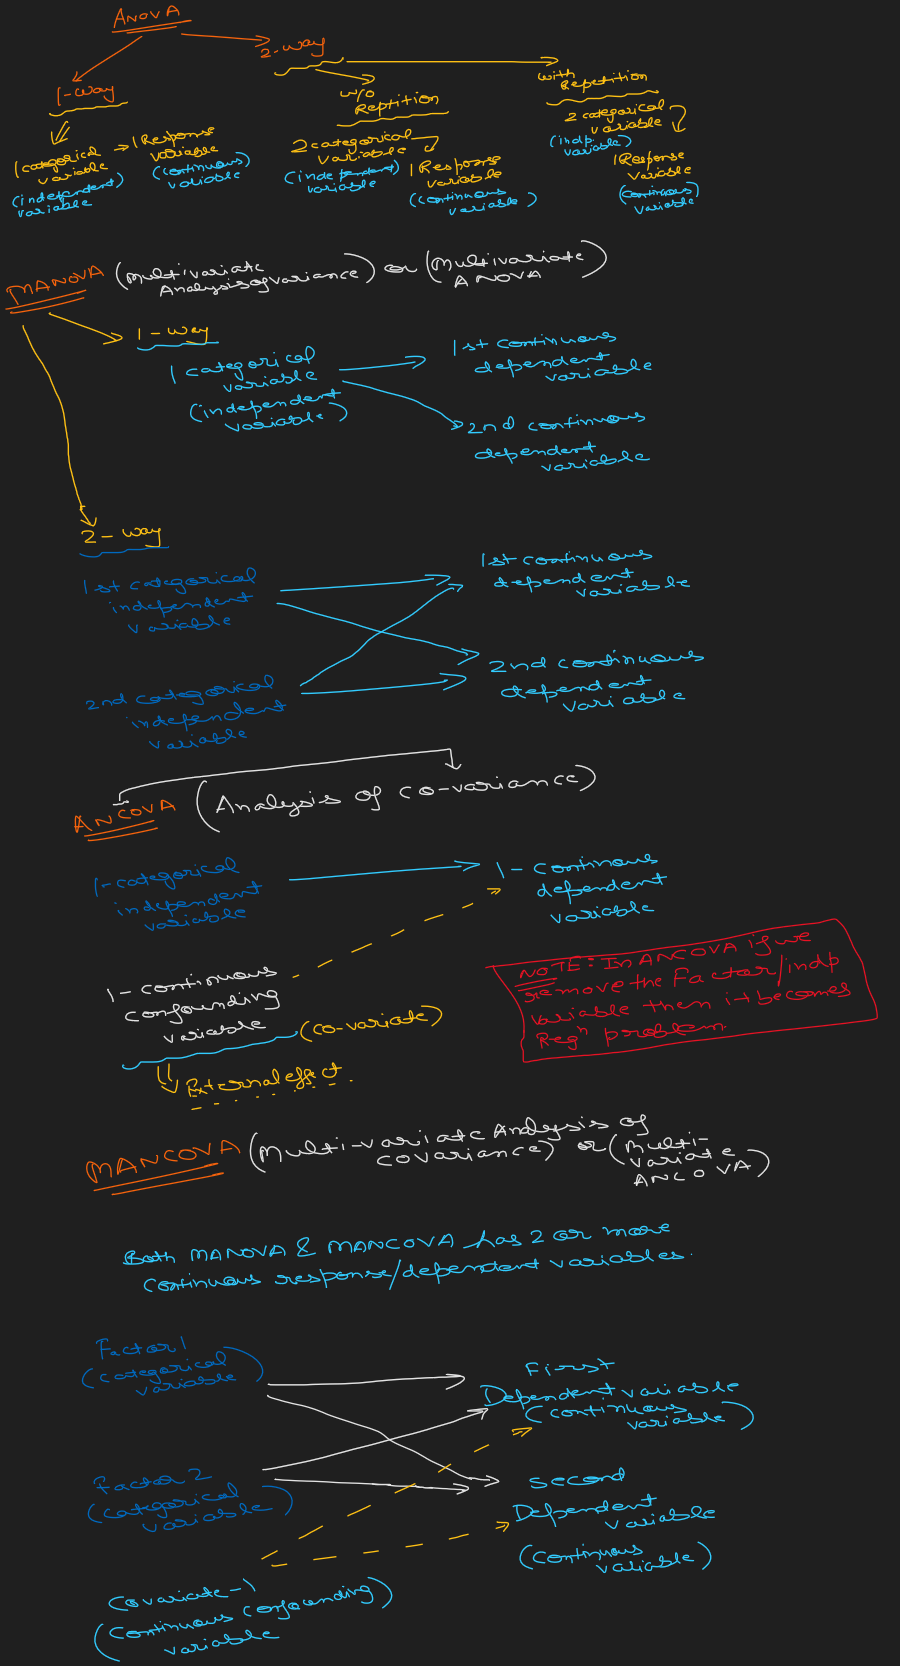 ANOVA
1-way
2-way
w/o
Reptition
with
Repetition
1 categorical
variable
(independent)
variable
1 Response
variable
(continuous)
variable
2 categorical
variable
(independent)
variable
1 Response
variable
(continuous
variable)
2 categorical
variable
(indp.
variable)
1 Response
variable
(continuous)
variable
MANOVA (Multivariate
Analysis of variance) or (Multivariate
ANOVA)
1-way
1 categorical
variable
(independent
variable)
1st continuous
dependent
variable
2nd continous
dependent
variable
2-way
1st categorical
independent
variable
1st continuous
dependent
variable
2nd categorical
independent
variable
2nd continuous
dependent
variable
ANCOVA (Analysis of co-variance)
1-categorical
independent
variable
1-continous
dependent
variable
1-continuous
confounding
variable
(co-variate)
External effect
NOTE: In ANCOVA if we
remove the Factor/indp
variable then it becomes
Regⁿ problem
MANCOVA (Multi-variate Analysis of
covariance) or (Multi-
variate
ANCOVA)
Both MANOVA & MANCOVA has 2 or more
continuous response/dependent variables.
Factor 1
(categorical
variable)
First
Dependent variable
(continuous
variable)
Factor 2
(categorical
variable)
second
Dependent
variable
(continuous
variable)
covariate-1
(continuous confounding)
variable